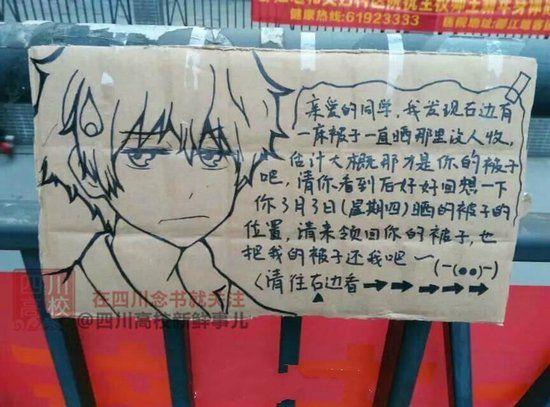 健康热线:61923333
亲爱的同学，我发现右边有
一床被子一直晒那里没人收，
估计大概那才是你的被子
吧，请你看到后好好回想一下
你3月3日(星期四)晒的被子的
位置，请来领回你的被子，也
把我的被子还我吧～(-(●●)-)
(请往右边看→→→→→→
四川
高校
在四川念书就关注
@四川高校新鲜事儿